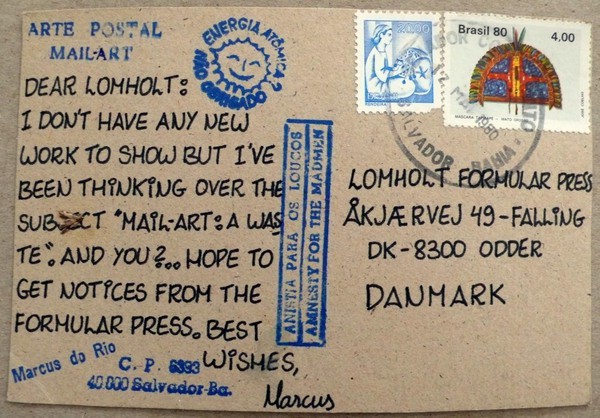 ARTE POSTAL
MAIL-ART
ENERGIA ATÔMICA?
NÃO OBRIGADO
DEAR LOMHOLT:
I DON'T HAVE ANY NEW
WORK TO SHOW BUT I'VE
BEEN THINKING OVER THE
"MAIL-ART: A WAS
TE". AND YOU?.. HOPE TO
GET NOTICES FROM THE
FORMULAR PRESS. BEST
WISHES,
Marcus
Marcus do Rio
C. P. 6393
40 000 Salvador-Ba.
ANISTIA PARA OS LOUCOS
AMNESTY FOR THE MADMEN
Brasil 80
4,00
SALVADOR - BAHIA
1980
LOMHOLT FORMULAR PRESS
ÅKJÆRVEJ 49-FALLING
DK-8300 ODDER
DANMARK